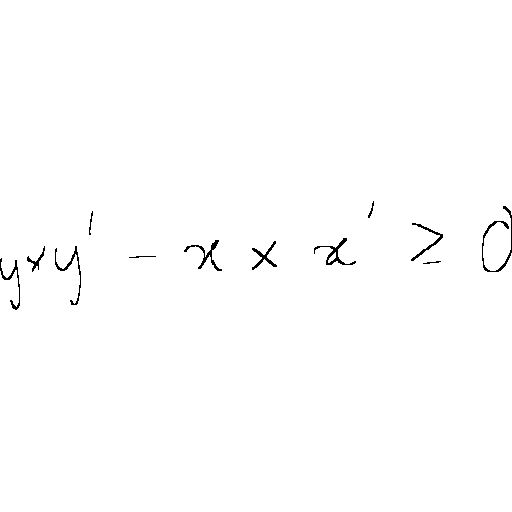 y × y' − x × x' ≥ 0